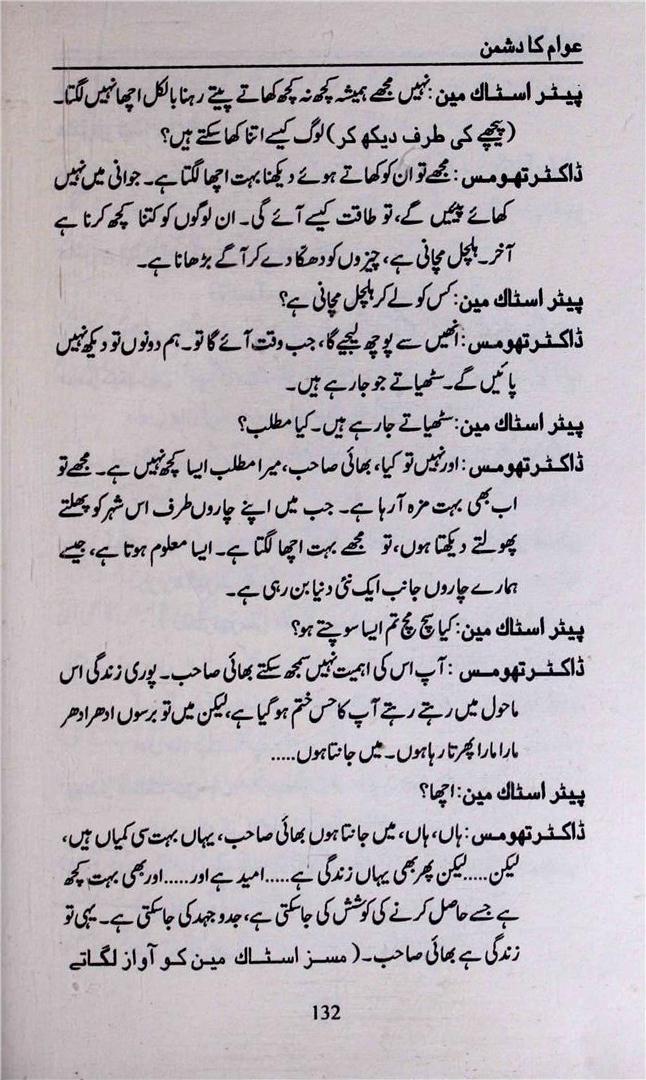 عوام کا دشمن
پیٹر اسٹاک مین: نہیں مجھے ہمیشہ کچھ نہ کچھ کھاتے پیتے رہنا بالکل اچھا نہیں لگتا۔
(پیچھے کی طرف دیکھ کر) لوگ کیسے اتنا کھا سکتے ہیں؟
ڈاکٹر تھومس: مجھے تو ان کو کھاتے ہوئے دیکھنا بہت اچھا لگتا ہے۔ جوانی میں نہیں
کھائے پئیں گے، تو طاقت کیسے آئے گی۔ ان لوگوں کو کتنا کچھ کرنا ہے
آخر۔ ہلچل مچانی ہے، چیزوں کو دھکا دے کر آگے بڑھانا ہے۔
پیٹر اسٹاک مین: کس کو لے کر ہلچل مچانی ہے؟
ڈاکٹر تھومس: انھیں سے پوچھ لیجیے گا، جب وقت آئے گا تو۔ ہم دونوں تو دیکھ نہیں
پائیں گے۔ سٹھیاتے جو جا رہے ہیں۔
پیٹر اسٹاک مین: سٹھیاتے جا رہے ہیں۔ کیا مطلب؟
ڈاکٹر تھومس: اور نہیں تو کیا، بھائی صاحب، میرا مطلب ایسا کچھ نہیں ہے۔ مجھے تو
اب بھی بہت مزہ آ رہا ہے۔ جب میں اپنے چاروں طرف اس شہر کو پھلتے
پھولتے دیکھتا ہوں، تو مجھے بہت اچھا لگتا ہے۔ ایسا معلوم ہوتا ہے، جیسے
ہمارے چاروں جانب ایک نئی دنیا بن رہی ہے۔
پیٹر اسٹاک مین: کیا سچ مچ تم ایسا سوچتے ہو؟
ڈاکٹر تھومس: آپ اس کی اہمیت نہیں سمجھ سکتے بھائی صاحب۔ پوری زندگی اس
ماحول میں رہتے رہتے آپ کا حس ختم ہو گیا ہے، لیکن میں تو برسوں ادھر ادھر
مارا مارا پھرتا رہا ہوں۔ میں جانتا ہوں.....
پیٹر اسٹاک مین: اچھا؟
ڈاکٹر تھومس: ہاں، ہاں، میں جانتا ہوں بھائی صاحب، یہاں بہت سی کمیاں ہیں،
لیکن.....لیکن پھر بھی یہاں زندگی ہے.....امید ہے اور.....اور بھی بہت کچھ
ہے جسے حاصل کرنے کی کوشش کی جا سکتی ہے، جدوجہد کی جا سکتی ہے۔ یہی تو
زندگی ہے بھائی صاحب۔ (مسز اسٹاک مین کو آواز لگاتے
132